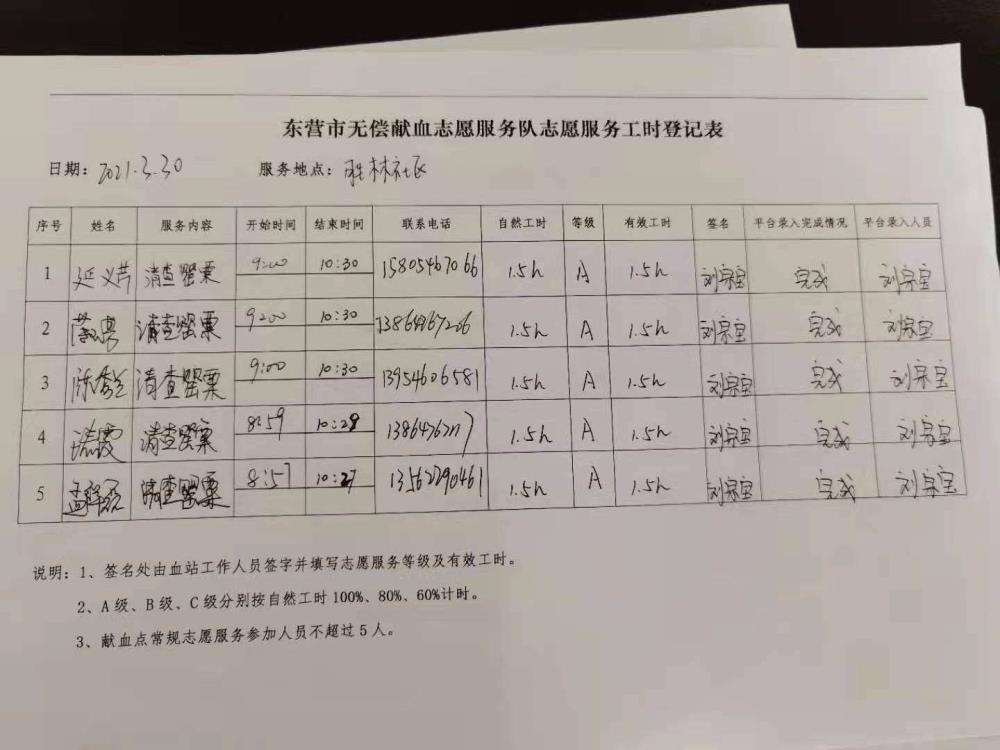 东营市无偿献血志愿服务队志愿服务工时登记表
日期：2021.3.30 服务地点：胜林社区
序号 姓名 服务内容 开始时间 结束时间 联系电话 自然工时 等级 有效工时 签名 平台录入完成情况 平台录入人员
1 延义芹 清查罂粟 9:00 10:30 15805467066 1.5h A 1.5h 刘宗宝 完成 刘宗宝
2 清查罂粟 9:00 10:30 13864767206 1.5h A 1.5h 刘宗宝 完成 刘宗宝
3 清查罂粟 9:00 10:30 13954606581 1.5h A 1.5h 刘宗宝 完成 刘宗宝
4 清查罂粟 8:59 10:28 1.5h A 1.5h 刘宗宝 完成 刘宗宝
5 清查罂粟 8:57 10:27 13562290461 1.5h A 1.5h 刘宗宝 完成 刘宗宝
说明：1、签名处由血站工作人员签字并填写志愿服务等级及有效工时。
2、A 级、B 级、C 级分别按自然工时 100%、80%、60%计时。
3、献血点常规志愿服务参加人员不超过 5 人。